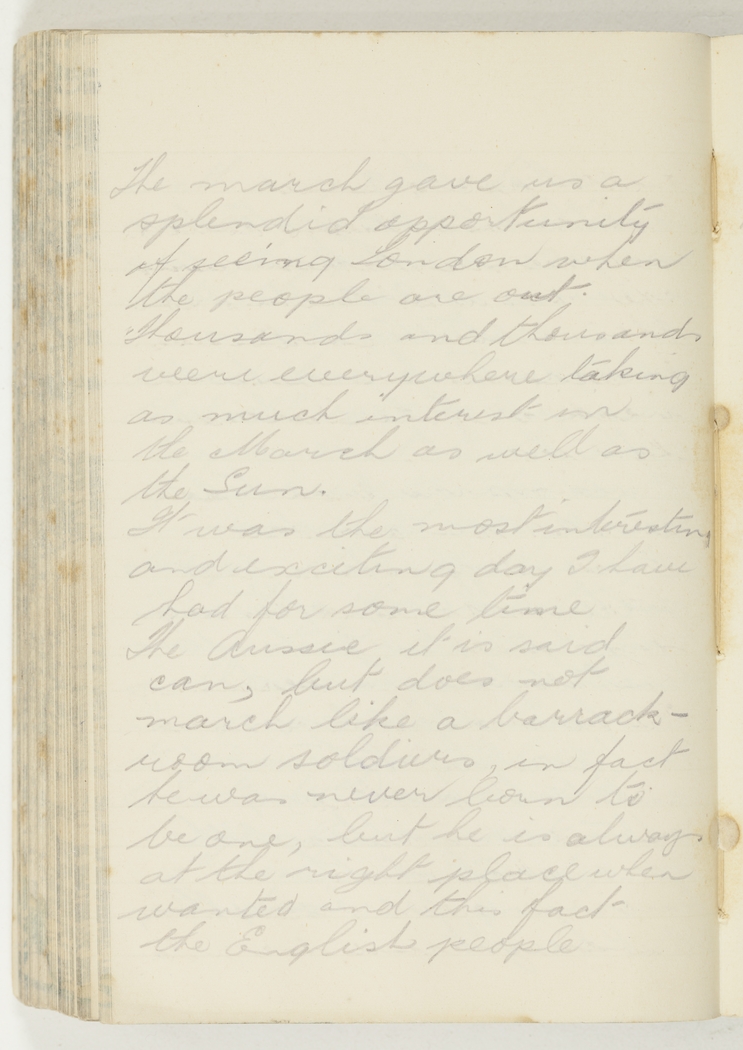 The march gave us a
splendid opportunity
of seeing London when
the people are out.
Thousands and thousands
were everywhere taking
as much interest in
the March as well as
the Sun.
It was the most interesting
and exciting day I have
had for some time
The Aussie it is said
can, but does not
march like a barrack-
room soldiers, in fact
he was never born to
be one, but he is always
at the right place when
wanted and this fact
the English people